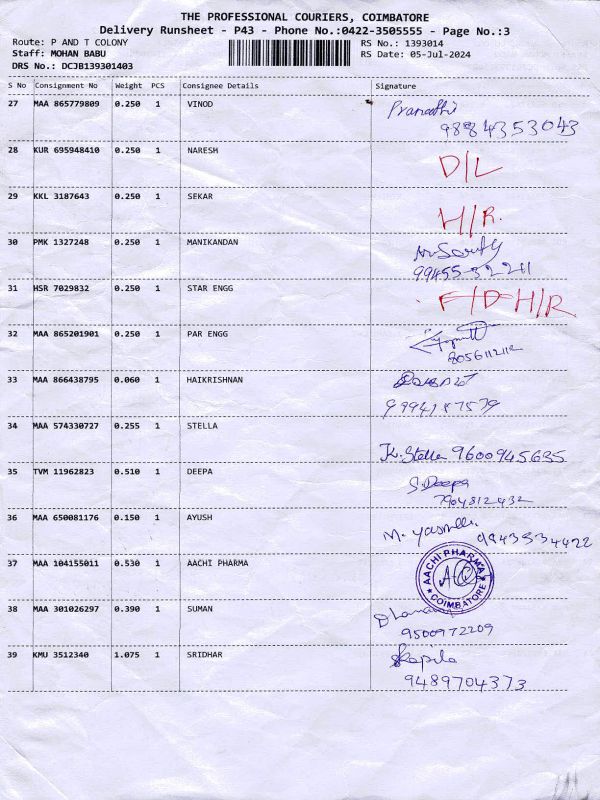 THE PROFESSIONAL COURIERS, COIMBATORE
Delivery Runsheet - P43 - Phone No.:0422-3505555 - Page No.:3
Route: P AND T COLONY RS No.: 1393014
Staff: MOHAN BABU RS Date: 05-Jul-2024
DRS No.: DCJB139301403
S No Consignment No Weight PCS Consignee Details Signature
27 MAA 865779809 0.250 1 VINOD
9884353043
28 KUR 695948410 0.250 1 NARESH D/L
29 KKL 3187643 0.250 1 SEKAR H/R.
30 PMK 1327248 0.250 1 MANIKANDAN
31 HSR 7029832 0.250 1 STAR ENGG F/D H/R
32 MAA 865201901 0.250 1 PAR ENGG
8056112112
33 MAA 866438795 0.060 1 HAIKRISHNAN
34 MAA 574330727 0.255 1 STELLA
K. Stella 9600945635
35 TVM 11962823 0.510 1 DEEPA S. Deepa
7904812432
36 MAA 650081176 0.150 1 AYUSH
37 MAA 104155011 0.530 1 AACHI PHARMA AACHI PHARMA COIMBATORE
38 MAA 301026297 0.390 1 SUMAN
9500972209
39 KMU 3512340 1.075 1 SRIDHAR Kapila
9489704373